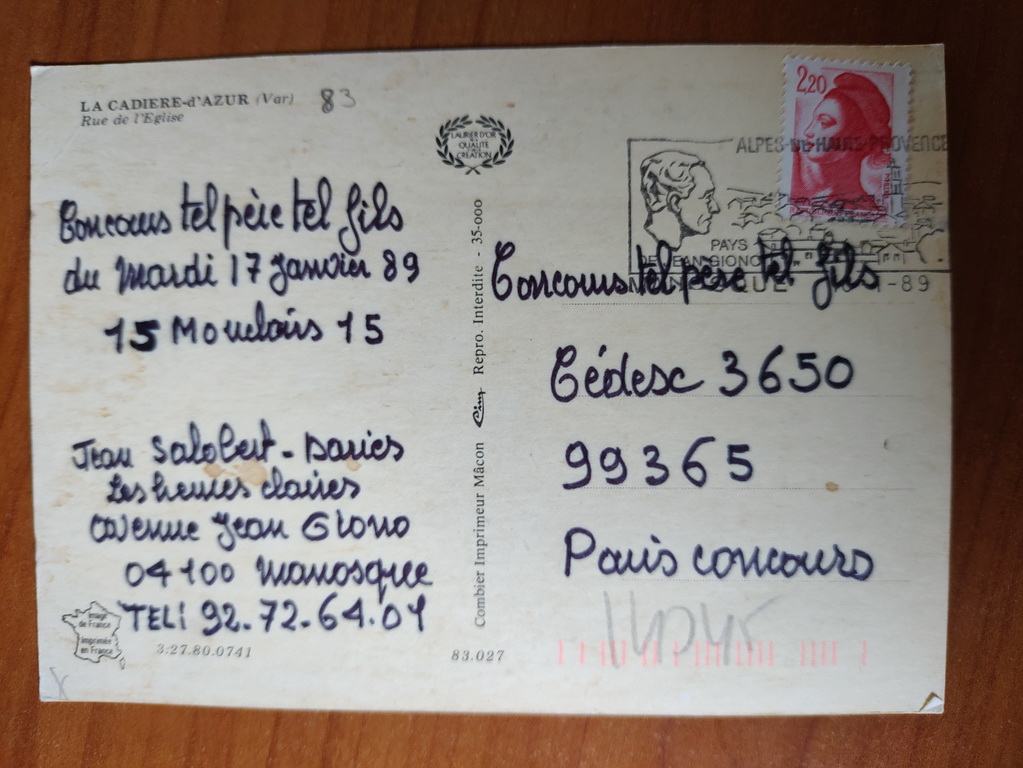 LA CADIERE-d'AZUR (Var) 83
Rue de l'Eglise
LAURIER D'OR
DE LA
QUALITÉ
CRÉATION
2,20
ALPES-DE HAUTE-PROVENCE
PAYS
DE JEAN GIONO
MANOSQUE 1-89
Concours tel père tel fils
du Mardi 17 Janvier 89
15 Mouclairs 15
Jean Salobert-Daries
Les heures claires
Avenue Jean Giono
04100 Manosque
TEL: 92.72.64.01
Image
de France
Imprimée
en France
3.27.80.0741
83.027
Combier Imprimeur Mâcon Cim Repro. Interdite - 35-000
Concours tel père tel fils
Cédesc 3650
99365
Paris concours